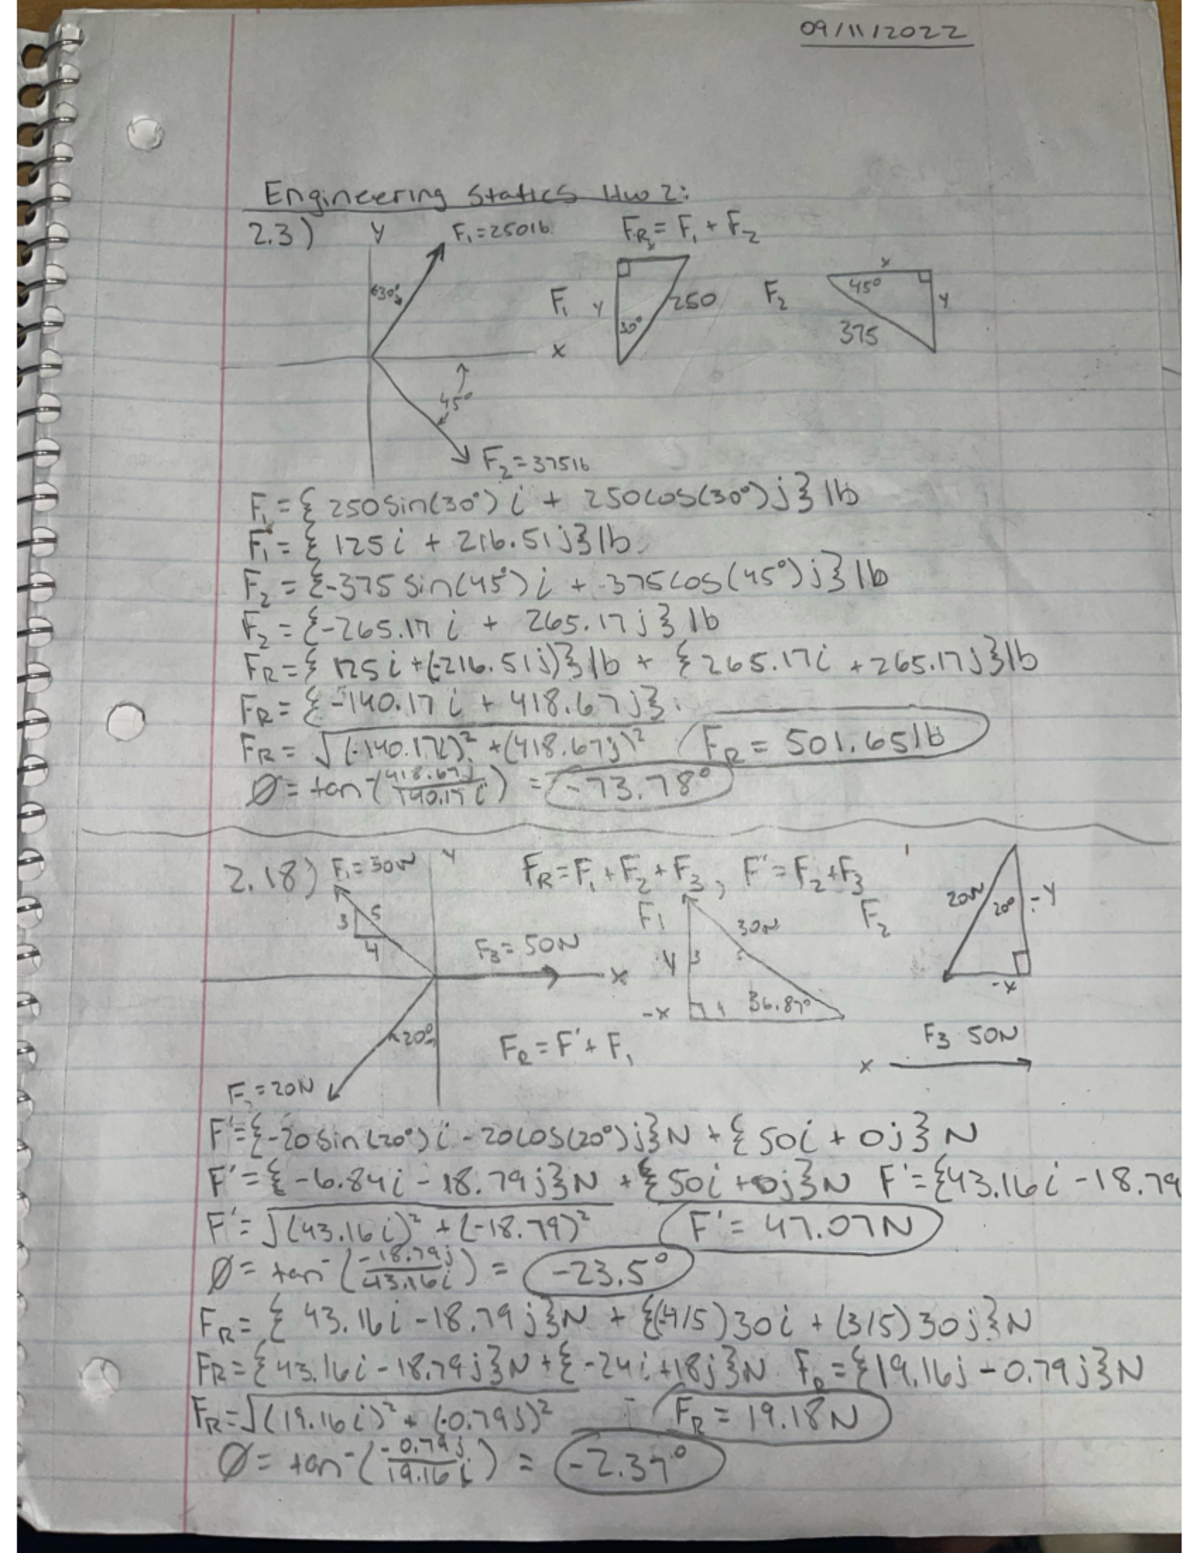 09/11/2022
Engineering Statics Hw 2:
2.3) Y F₁=250lb FR=F₁+F₂
x x
30° F₁ Y 250 F₂ 45° Y
30° 375
x
45°
F₂=375lb
F₁={250sin(30°)i + 250cos(30°)j}lb
F₁={125i + 216.51j}lb
F₂={-375sin(45°)i + -375cos(45°)j}lb
F₂={-265.17i + 265.17j}lb
FR={125i+(-216.51j)}lb + {265.17i+265.17j}lb
FR={-140.17i + 418.67j}
FR=√(-140.17i)²+(418.67j)² FR=501.65lb
Ø=tan⁻(418.67j/140.17i) = -73.78°
2.18) F₁=30N Y FR=F₁+F₂+F₃, F'=F₂+F₃
20N 20° -Y
3 5 F₁ 30N F₂
4 F₃=50N x Y 3
-x
-x 4 36.87°
20° FR=F'+F₁ F3 50N
x
F₂=20N
F'={-20sin(20°)i-20cos(20°)j}N+{50i+0j}N
F'={-6.84i-18.79j}N+{50i+0j}N F'={43.16i-18.79
F'=√(43.16i)²+(-18.79)² F'=47.07N
Ø=tan⁻(-18.79j/43.16i) = -23.5°
FR={43.16i-18.79j}N + {(-4/5)30i+(3/5)30j}N
FR={43.16i-18.79j}N+{-24i+18j}N FR={19.16j-0.79j}N
FR=√(19.16i)²+(-0.79j)² FR=19.18N
Ø=tan⁻(-0.79j/19.16i) = -2.37°